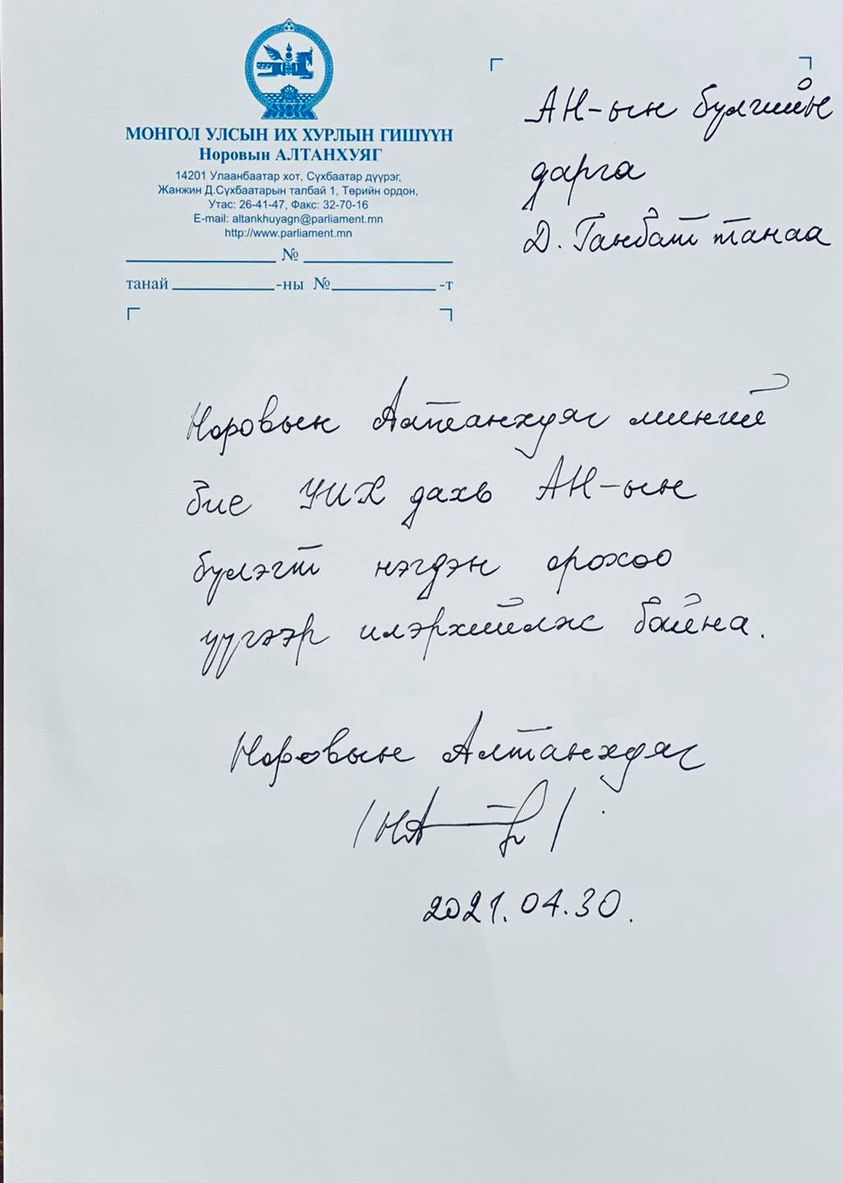 МОНГОЛ УЛСЫН ИХ ХУРЛЫН ГИШҮҮН
Норовын АЛТАНХУЯГ
14201 Улаанбаатар хот, Сүхбаатар дүүрэг,
Жанжин Д.Сүхбаатарын талбай 1, Төрийн ордон,
Утас: 26-41-47, Факс: 32-70-16
E-mail: altankhuyagn@parliament.mn
http://www.parliament.mn
№
танай -ны № -т
АН-ын бүлгийн
дарга
Д. Ганбат танаа
Норовын Алтанхуяг миний
бие УИХ дахь АН-ын
бүлэгт нэгдэн орохоо
үүгээр илэрхийлж байна.
Норовын Алтанхуяг
2021.04.30.